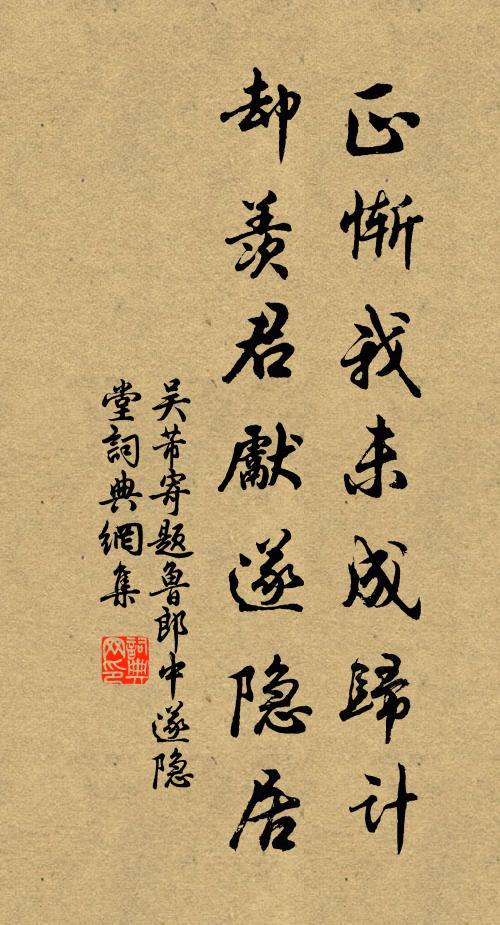 正慚我未成歸計
却羨君獻遂隐居
吴芾寄题鲁郎中遂隐
堂詞典網集
詞典网印